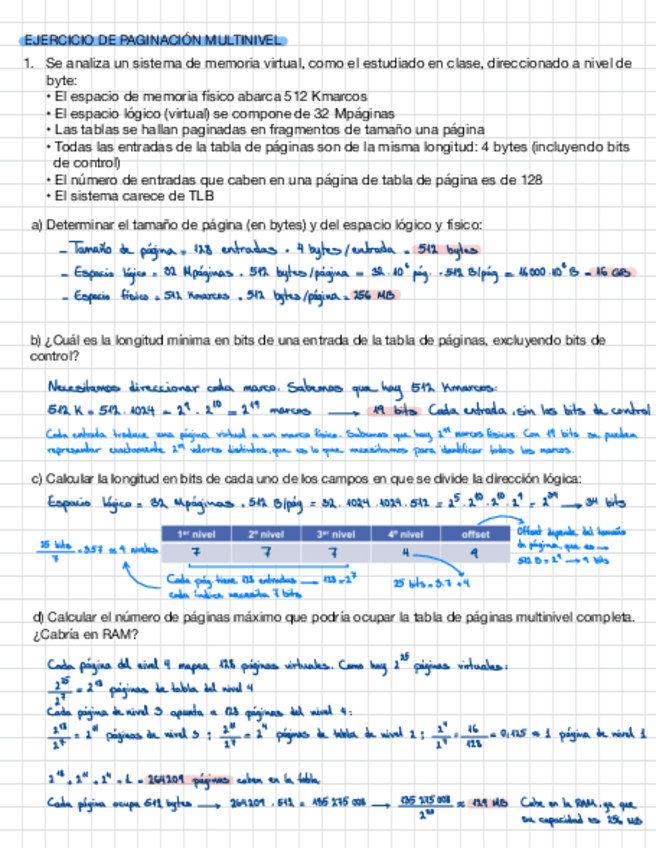 EJERCICIO DE PAGINACIÓN MULTINIVEL
1. Se analiza un sistema de memoria virtual, como el estudiado en clase, direccionado a nivel de
byte:
• El espacio de memoria físico abarca 512 Kmarcos
• El espacio lógico (virtual) se compone de 32 Mpáginas
• Las tablas se hallan paginadas en fragmentos de tamaño una página
• Todas las entradas de la tabla de páginas son de la misma longitud: 4 bytes (incluyendo bits
de control)
• El número de entradas que caben en una página de tabla de página es de 128
• El sistema carece de TLB
a) Determinar el tamaño de página (en bytes) y del espacio lógico y físico:
- Tamaño de página = 128 entradas · 4 bytes/entrada = 512 bytes
- Espacio lógico = 32 Mpáginas · 512 bytes/página = 32 · 10⁶ pág · 512 B/pág = 16000 · 10⁶ B = 16 GB
- Espacio físico = 512 Kmarcos · 512 bytes/página = 256 MB
b) ¿Cuál es la longitud mínima en bits de una entrada de la tabla de páginas, excluyendo bits de
control?
Necesitamos direccionar cada marco. Sabemos que hay 512 Kmarcos:
512 K = 512 · 1024 = 2⁹ · 2¹⁰ = 2¹⁹ marcos → 19 bits Cada entrada, sin los bits de control
Cada entrada traduce una página virtual a un marco físico. Sabemos que hay 2¹⁹ marcos físicos. Con 19 bits se pueden
representar exactamente 2¹⁹ valores distintos, que es lo que necesitamos para identificar todos los marcos.
c) Calcular la longitud en bits de cada uno de los campos en que se divide la dirección lógica:
Espacio lógico = 32 Mpáginas · 512 B/pág = 32 · 1024 · 1024 · 512 = 2⁵ · 2¹⁰ · 2¹⁰ · 2⁹ = 2³⁴ → 34 bits
1ᵉʳ nivel 2º nivel 3ᵉʳ nivel 4º nivel offset
7 7 7 4 9
Offset depende del tamaño
de página, que es →
512 B = 2⁹ → 9 bits
25 bits / 7 = 3.57 ≈ 4 niveles
Cada pág tiene 128 entradas → 128 = 2⁷
cada índice necesita 7 bits
25 bits = 3·7 + 4
d) Calcular el número de páginas máximo que podría ocupar la tabla de páginas multinivel completa.
¿Cabría en RAM?
Cada página del nivel 4 mapea 128 páginas virtuales. Como hay 2²⁵ páginas virtuales:
2²⁵/2⁷ = 2¹⁸ páginas de tabla del nivel 4
Cada página de nivel 3 apunta a 128 páginas del nivel 4:
2¹⁸/2⁷ = 2¹¹ páginas de nivel 3 ; 2¹¹/2⁷ = 2⁴ páginas de tabla de nivel 2 ; 2⁴/2⁷ = 16/128 = 0,125 ≈ 1 página de nivel 1
2¹⁸ + 2¹¹ + 2⁴ + 1 = 264209 páginas caben en la tabla
Cada página ocupa 512 bytes → 264209 · 512 = 135 275 008 → 135 275 008 / 2²⁰ ≈ 129 MB Cabe en la RAM, ya que
su capacidad es 256 MB